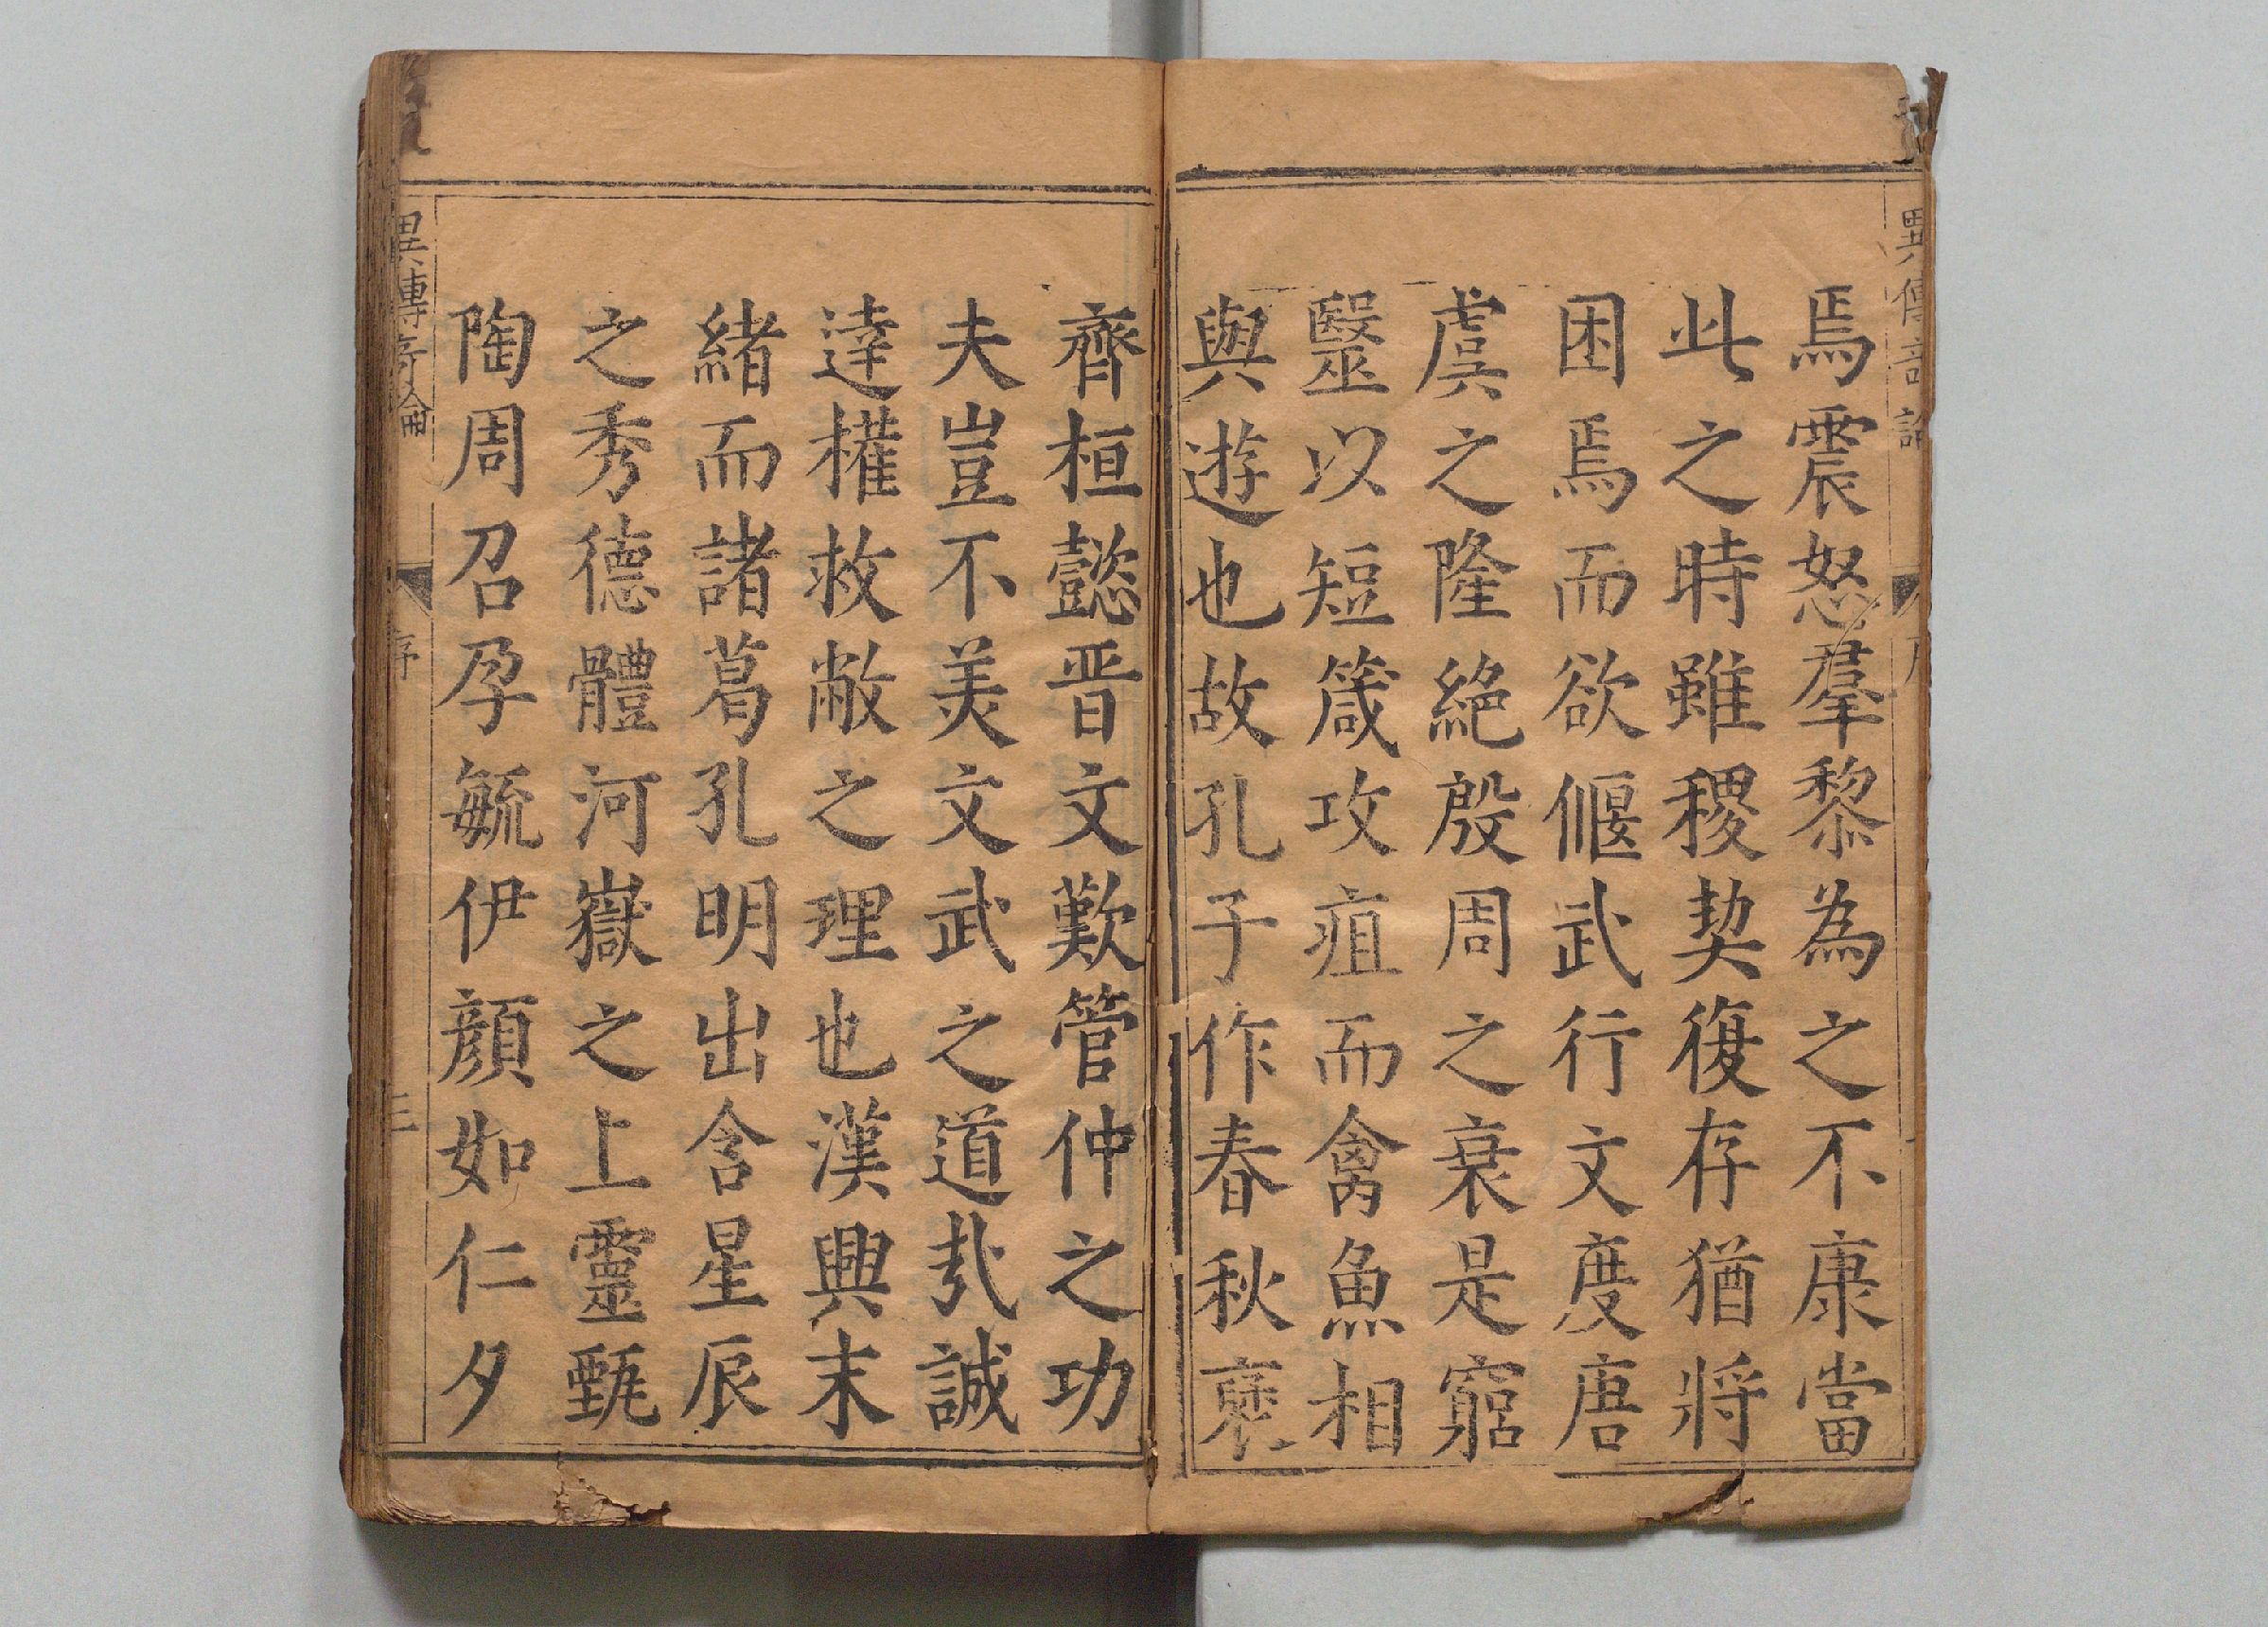 焉震怒羣黎為之不康當
此之時雖稷契復存猶將
困焉而欲偃武行文度唐
虞之隆絕殷周之衰是窮
毉以短箴攻疽而禽魚相
與遊也故孔子作春秋襃
齊桓懿晋文歎管仲之功
夫豈不美文武之道㢤誠
達權救敝之理也漢興末
緒而諸葛孔明出含星辰
之秀德體河嶽之上靈甄
陶周召孕毓伊顔如仁夕
異傳奇論
序
三